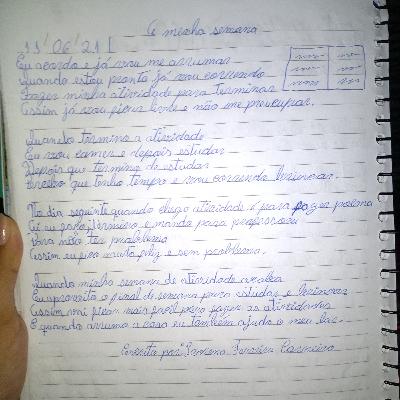 A minha semana
11/06/21
Eu acordo e já vou me arrumar
Quando estou pronta já vou correndo
Fazer minha atividade para terminar
Assim já vou ficar livre e não me preocupar.
Quando termino a atividade
Eu vou comer e depois estudar
Depois que termino de estudar
tenho tempo e vou correndo brincar.
No dia seguinte quando chega atividade é para fazer poema
eu termino e mando para professora
Para não ter problema
Assim eu fico muito feliz e sem problema.
Quando minha semana de atividade acaba
Eu aproveito o final de semana para estudar e brincar
Assim vai ficar mais fácil para fazer as atividades
E quando arrumo a casa eu também ajudo o meu lar.
Escrito por: Ferreira